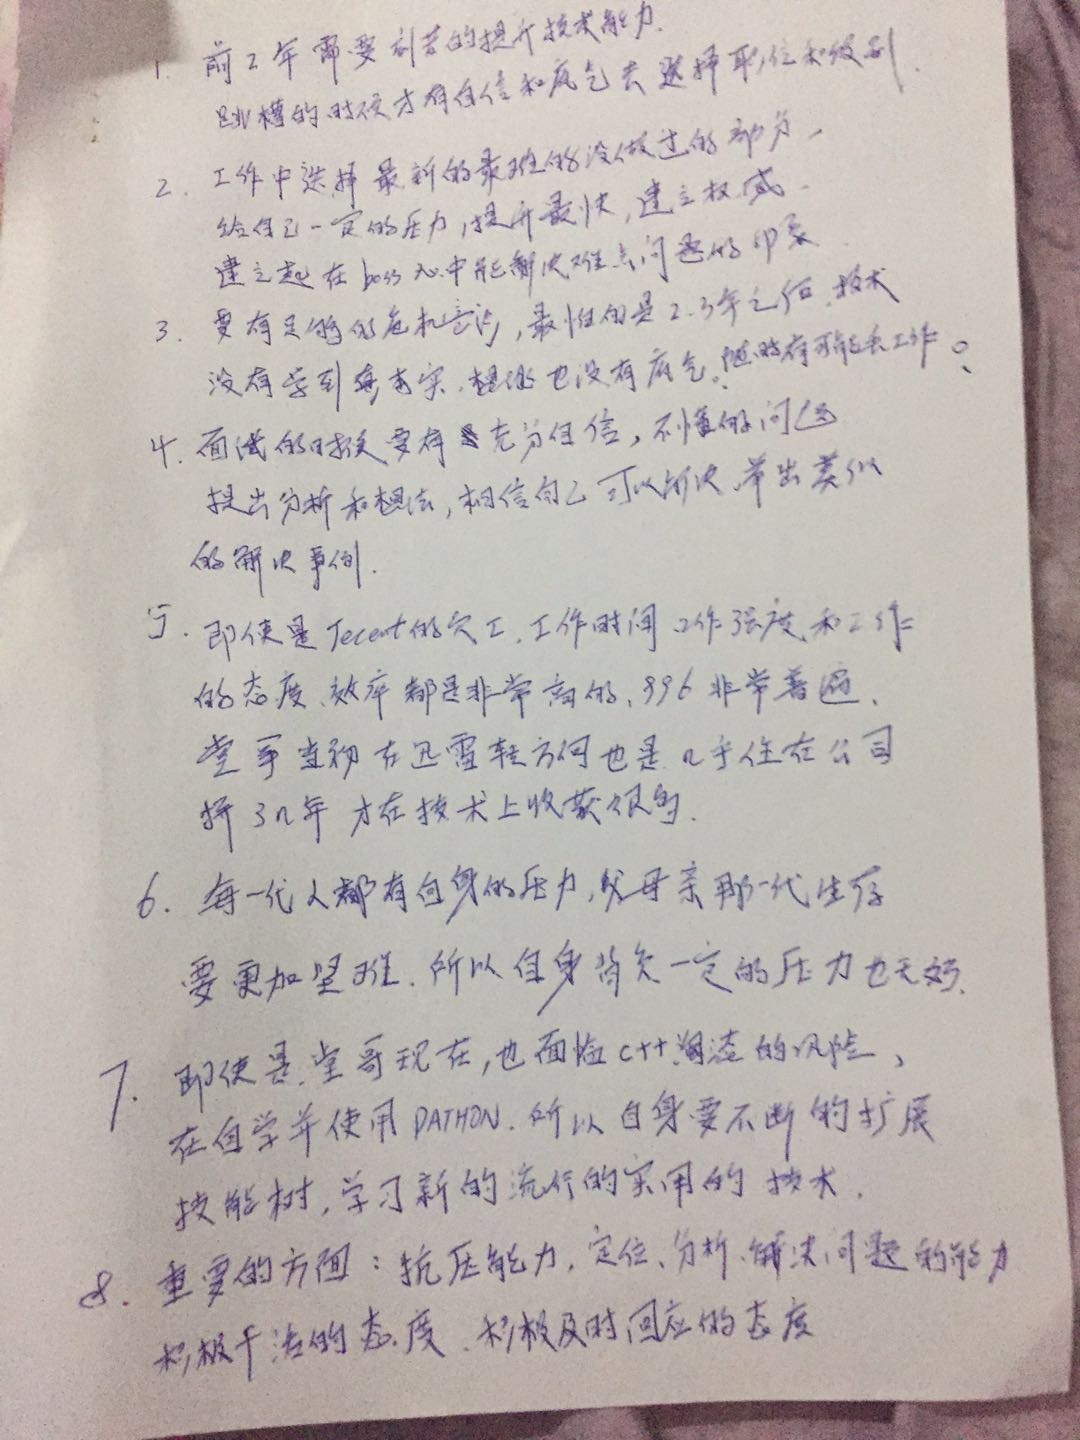 1. 前2年需要刻苦的提升技术能力.
跳槽的时候才有自信和底气去选择职位和级别.
2. 工作中选择最新的最难的没做过的部分,
给自己一定的压力,提升最快,建立权威.
建立起在boss心中能解决难点问题的印象.
3. 要有足够的危机意识,最怕的是2.3年之后.技术
没有学到真东西.想跳也没有底气.随时有可能丢工作。
4. 面试的时候要有充分自信,不懂的问题
提出分析和想法,相信自己可以解决.举出类似
的解决事例.
5. 即使是Tecent的员工.工作时间.工作强度和工作
的态度、效率都是非常高的、996非常普遍.
堂哥当初在迅雷转方向也是几乎住在公司
拼3n年才在技术上收获很多.
6. 每一代人都有自身的压力,父母亲那一代生存
要更加坚难.所以自身背负一定的压力也无妨.
7. 即使是堂哥现在,也面临c++淘汰的风险、
在自学并使用PATHON.所以自身要不断的扩展
技能树,学习新的流行的实用的技术.
8. 重要的方面:抗压能力.定位、分析、解决问题的能力
积极干活的态度、积极及时回应的态度